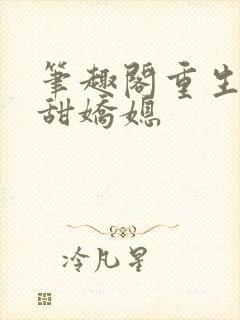 筆趣閣重生
甜嬌媳
冷凡星